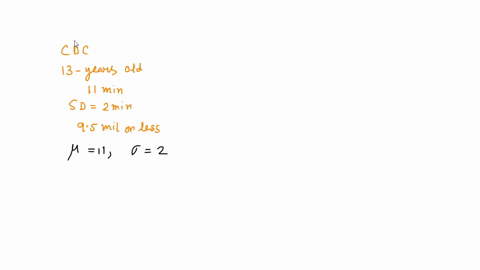 CDC
13-years old
11 min
SD = 2 min
9.5 mil or less
μ = 11, σ = 2